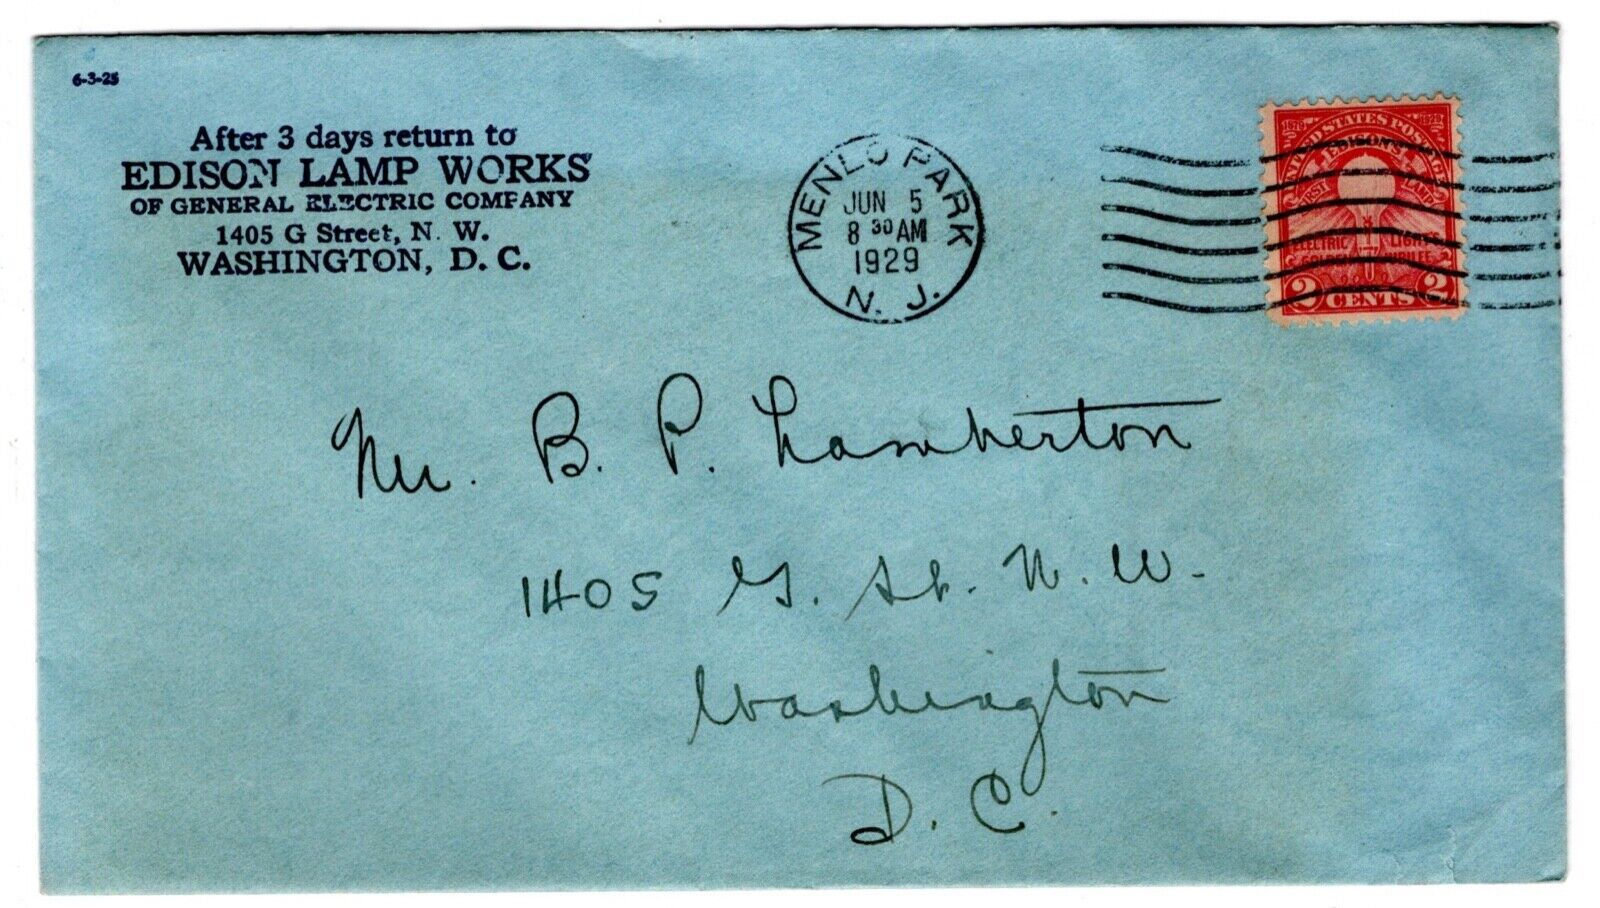 6-3-25
After 3 days return to
EDISON LAMP WORKS
OF GENERAL ELECTRIC COMPANY
1405 G Street, N. W.
WASHINGTON, D. C.
MENLO PARK
JUN 5
8 30 AM
1929
N. J.
UNITED STATES POSTAGE
1879 1929
EDISON'S
FIRST LAMP
ELECTRIC LIGHT'S
GOLDEN JUBILEE
2 CENTS 2
Mr. B. P. Lamberton
1405 G. St. N. W.
Washington
D. C.